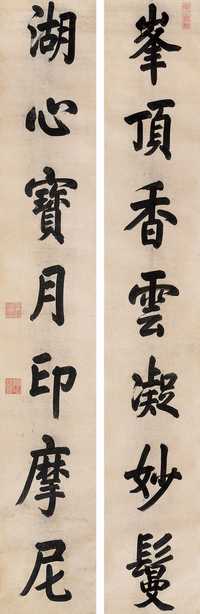 峯頂香雲凝妙鬘
湖心寶月印摩尼